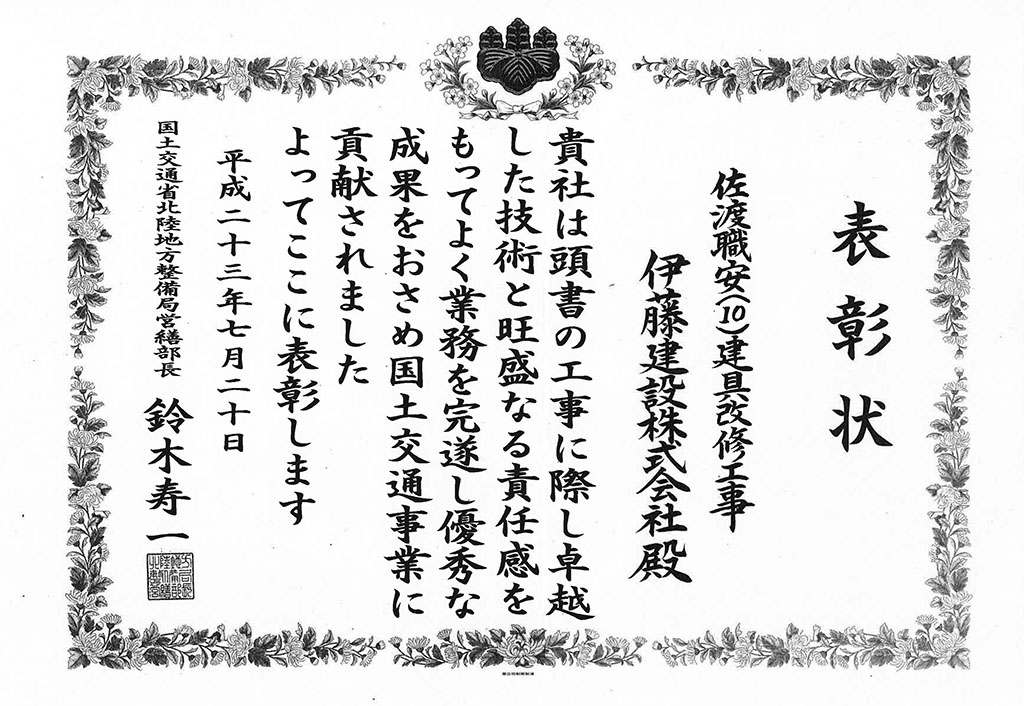 表彰状
佐渡職安(10)建具改修工事
伊藤建設株式会社殿
貴社は頭書の工事に際し卓越
した技術と旺盛なる責任感を
もってよく業務を完遂し優秀な
成果をおさめ国土交通事業に
貢献されました
よってここに表彰します
平成二十三年七月二十日
国土交通省北陸地方整備局営繕部長
鈴木寿一